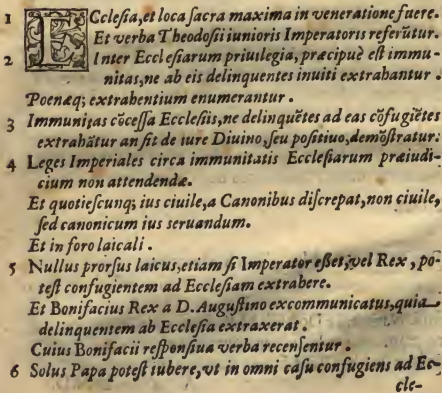 1 Ecclesia, et loca sacra maxima in veneratione fuere.
Et verba Theodosii iunioris Imperatoris referūtur.
2 Inter Ecclesiarum priuilegia, præcipuè est immu-
nitas, ne ab eis delinquentes inuiti extrahantur.
Poenæq; extrahentium enumerantur.
3 Immunitas cōcessa Ecclesiis, ne delinquētes ad eas cōfugiētes
extrahātur an sit de iure Diuino, seu positiuo, demōstratur:
4 Leges Imperiales circa immunitatis Ecclesiarum præiudi-
cium non attendendæ.
Et quotiescunq; ius ciuile, a Canonibus discrepat, non ciuile,
sed canonicum ius seruandum.
Et in foro laicali.
5 Nullus prorsus laicus, etiam si Imperator esset, vel Rex, po-
test confugientem ad Ecclesiam extrabere.
Et Bonifacius Rex a D. Augustino excommunicatus, quia
delinquentem ab Ecclesia extraxerat.
Cuius Bonifacii responsiua verba recensentur.
6 Solus Papa potest iubere, vt in omni casu confugiens ad Ec-
cle-